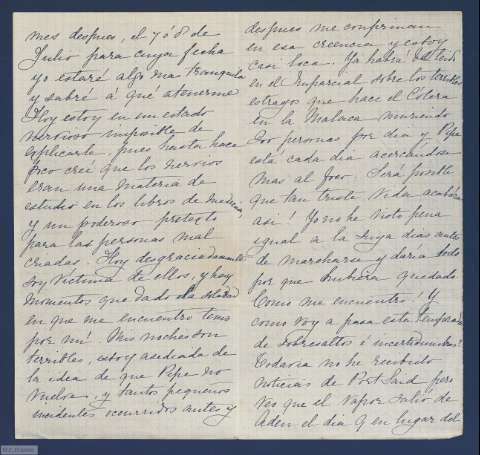 mes despues, el 7 ó 8 de
Julio para cuya fecha
yo estaré algo mas tranquila
y sabré á qué atenerme
Hoy estoy en un estado
nervioso imposible de
esplicarte, pues hasta hace
poco creí que los nervios
eran una materia de
estudio en los libros de medicina
y un poderoso pretesto
para las personas mal
criadas. Hoy desgraciadamente
soy victima de ellos, y hay
momentos que dado la soledad
en que me encuentro temo
por mi. Mis noches son
terribles, estoy asediada de
la idea de que Pepe no
vuelva, y tantos pequeños
incidentes ocurridos antes y
despues me confirman
en esa creencia y estoy
casi loca. Ya habrá leido
en el Imparcial sobre los terribles
estragos que hace el Cólera
en la Malaca muriendo
200 personas por dia y Pepe
está cada dia acercandose
mas al foco. Será posible
que tan triste vida acabara
asi! Yo no he visto pena
igual a la suya dias antes
de marcharse y daria todo
por que hubiera quedado
Como me encuentro! Y
como voy a pasar esta temporada
de sobresaltos é incertidumbres?
Todavia no he recibido
noticias de Port Said pero
veo que el vapor salió de
Aden el dia 9 en lugar del